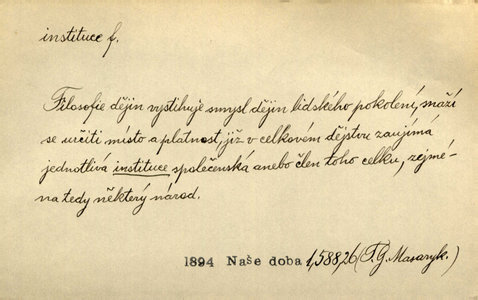 instituce f.
Filosofie dějin vystihuje smysl dějin lidského pokolení, snaží
se určiti místo a platnost, již v celkovém dějstvu zaujímá
jednotlivá instituce společenská anebo člen toho celku, zejmé-
na tedy některý národ.
1894 Naše doba 1,588,26 (T. G. Masaryk.)